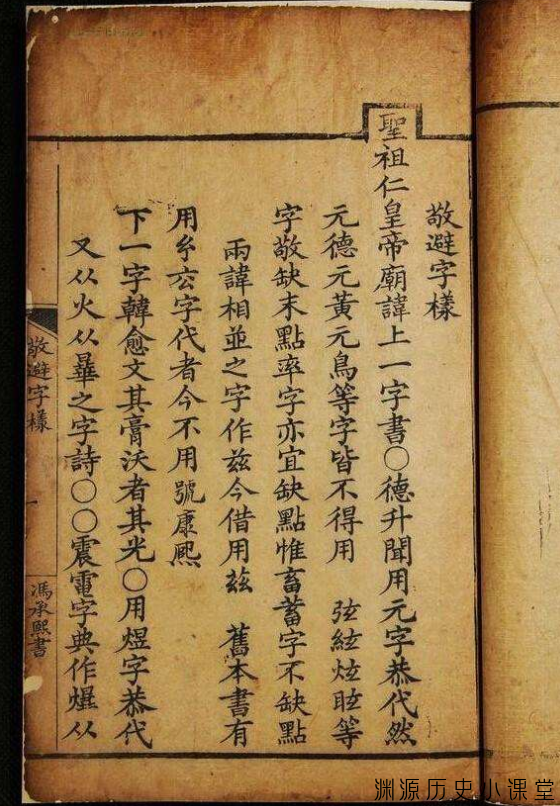 敬避字樣
聖祖仁皇帝廟諱上一字書○德升聞用元字恭代然
元德元黃元鳥等字皆不得用　弦絃炫眩等
字敬缺末點率字亦宜缺點惟畜蓄字不缺點
兩諱相並之字作兹今借用茲　舊本書有
用厷字代者今不用號康熈
下一字韓愈文其膏沃者其光○用煜字恭代
又从火从曅之字詩○○震電字典作爗从
敬避字樣
一
馮承熙書
渊源历史小课堂